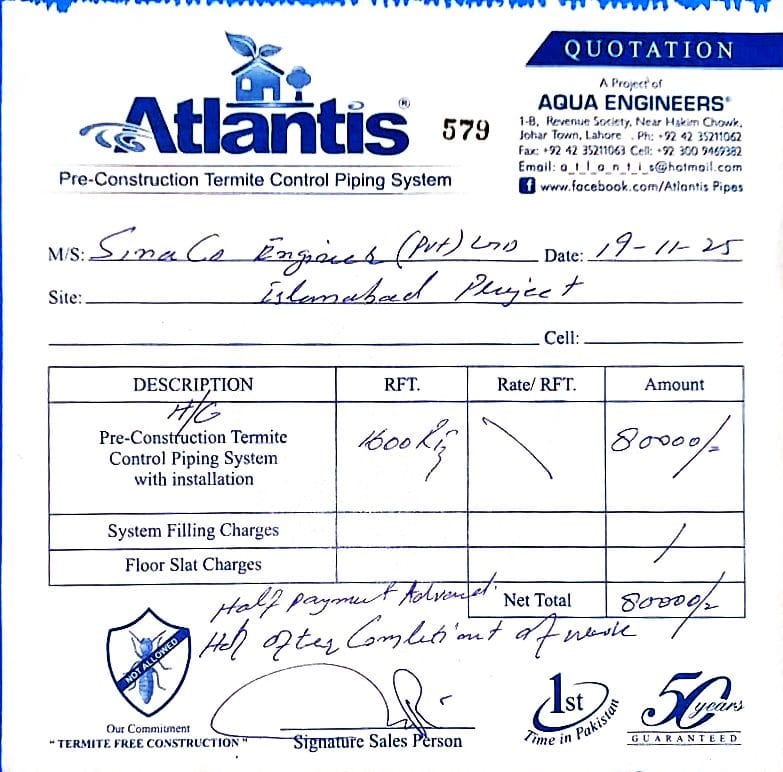 QUOTATION
Atlantis®
579
Pre-Construction Termite Control Piping System
A Project of
AQUA ENGINEERS®
1-B, Revenue Society, Near Hakim Chowk,
Johar Town, Lahore . Ph: +92 42 35211062
Fax: +92 42 35211063 Cell: +92 300 9469382
Email: a_t_l_a_n_t_i_s@hotmail.com
www.facebook.com/Atlantis Pipes
M/S: Sina Co Engineer (Pvt) LTD Date: 19-11-25
Site: Islamabad Project
Cell:
DESCRIPTION RFT. Rate/ RFT. Amount
H/G
Pre-Construction Termite
Control Piping System
with installation
1600 80000/-
System Filling Charges
Floor Slat Charges
Half payment Advance.
Net Total 80000/-
Half after Completiont of work
NOT ALLOWED
Our Commitment
"TERMITE FREE CONSTRUCTION"
Signature Sales Person
1st
Time in Pakistan
50 years
GUARANTEED